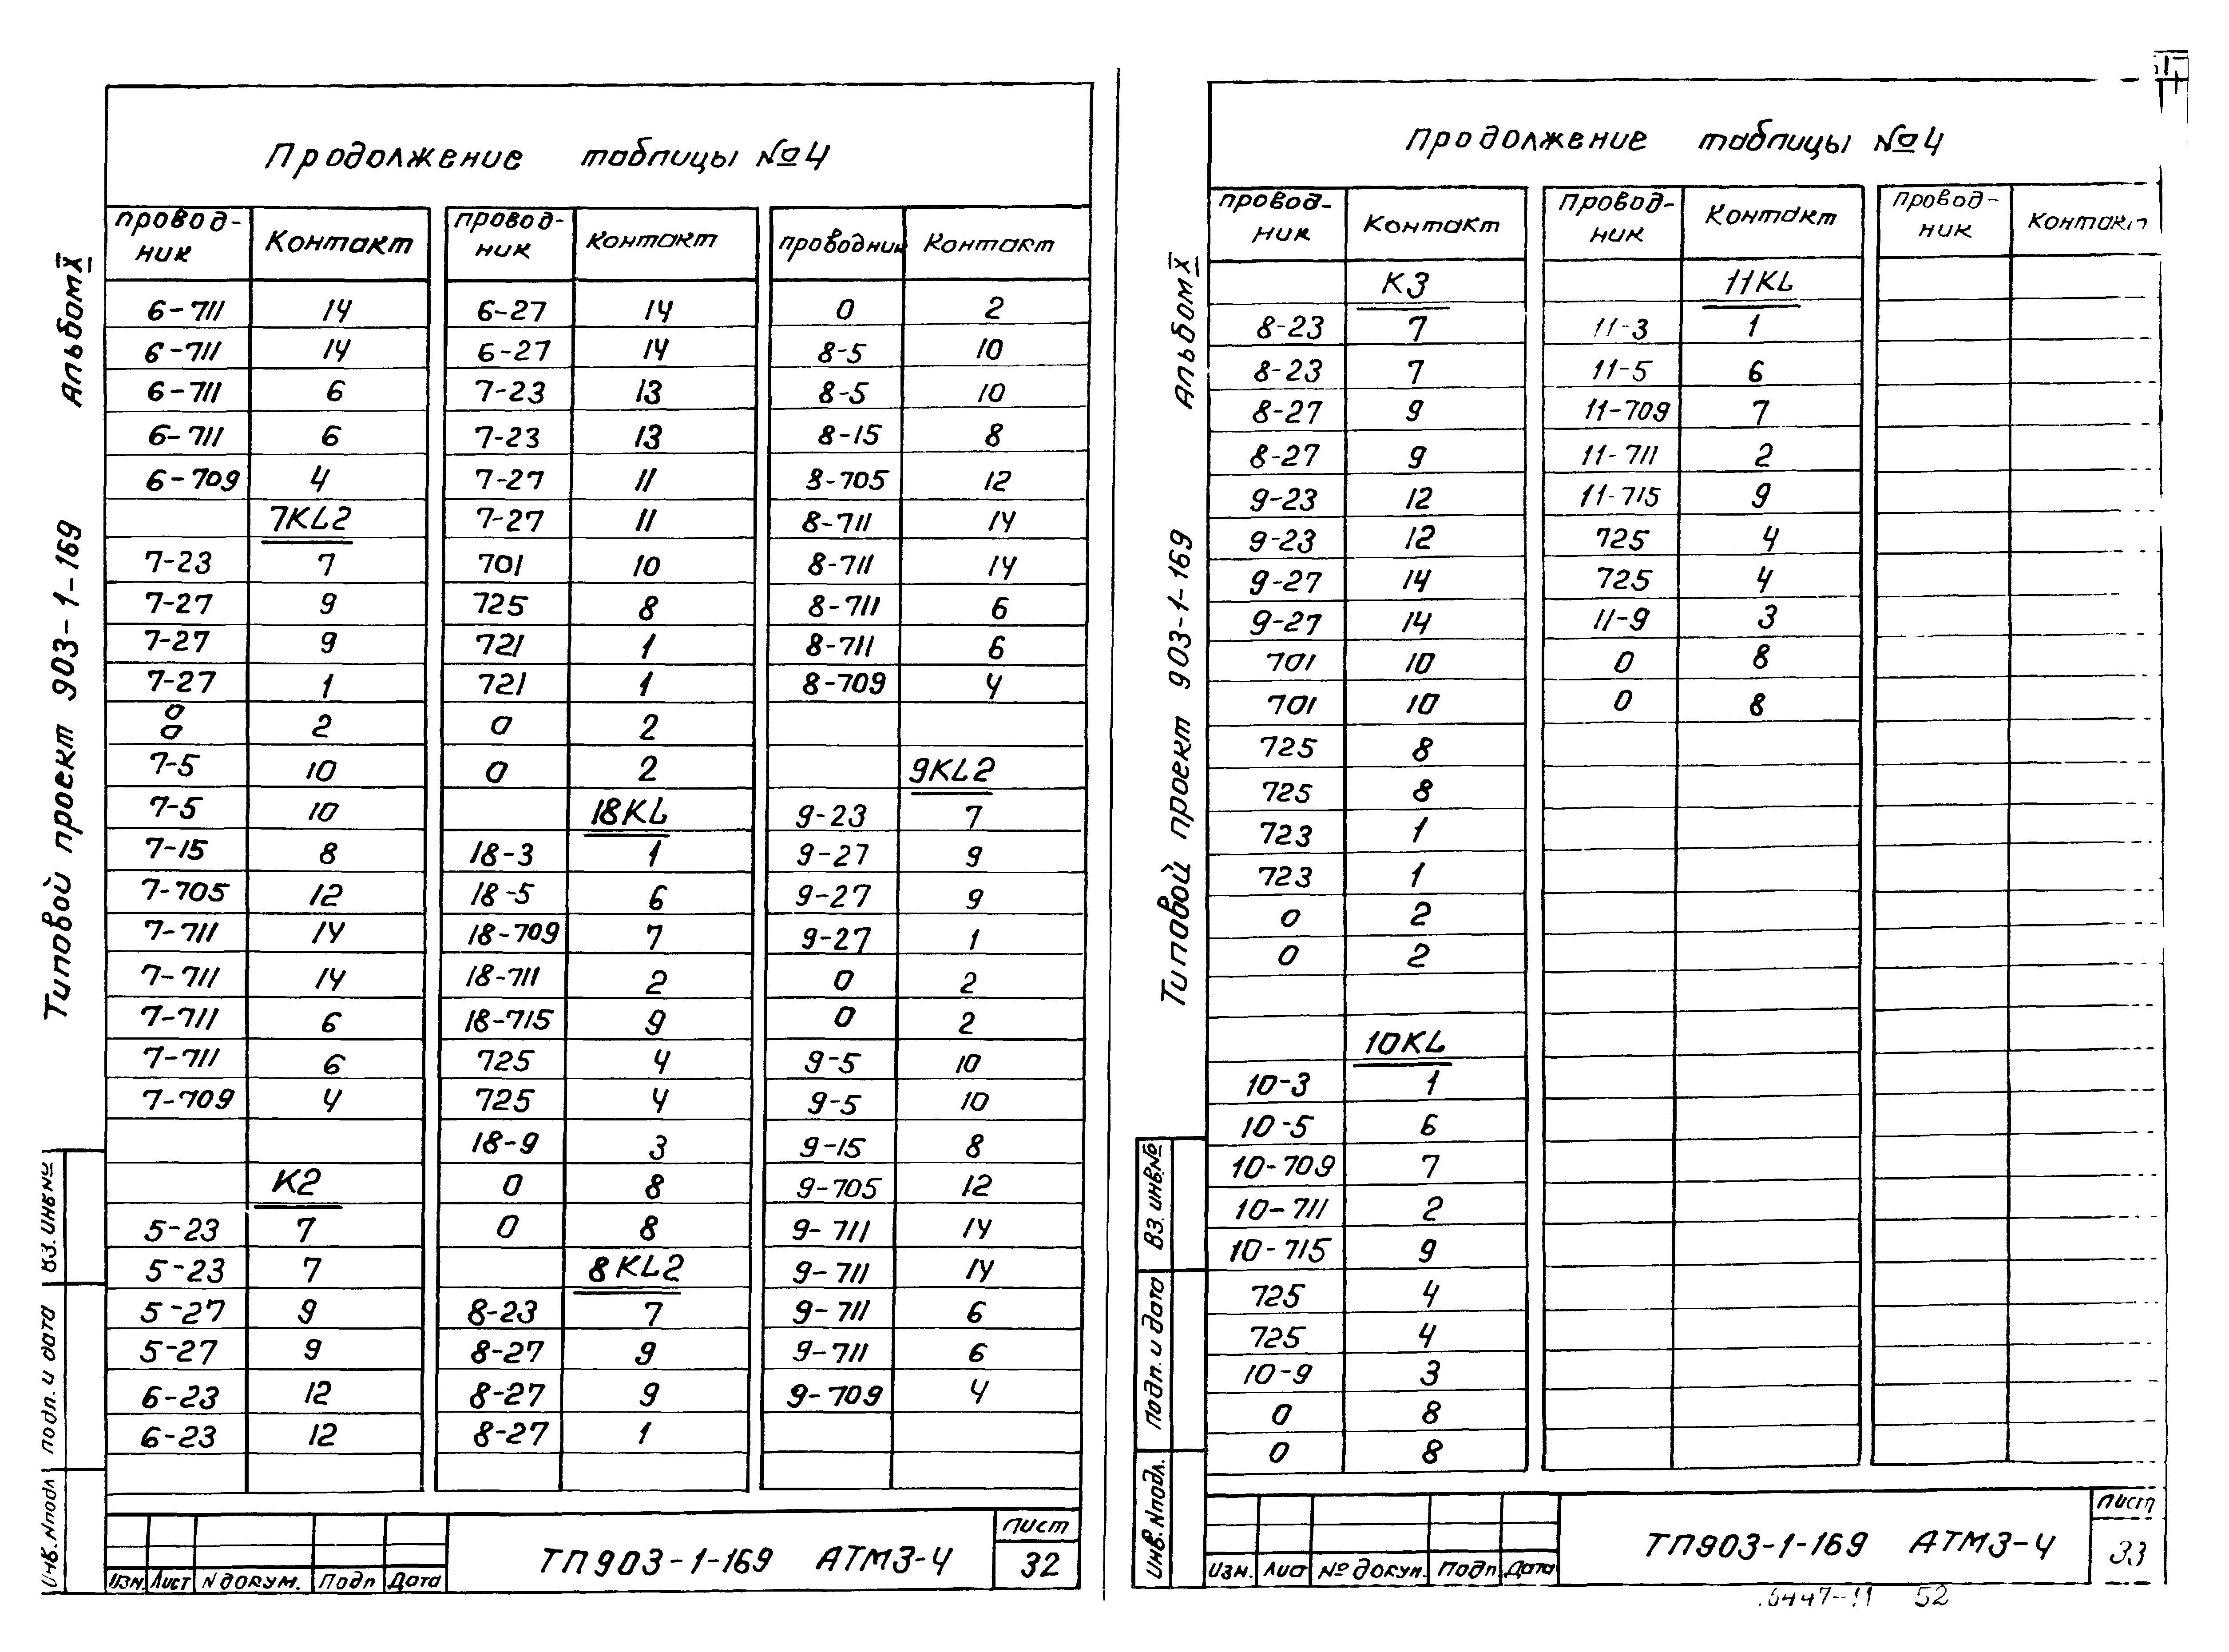 Продолжение таблицы №4
провод-ник Контакт провод-ник Контакт проводник Контакт
6-711 14 6-27 14 0 2
6-711 14 6-27 14 8-5 10
6-711 6 7-23 13 8-5 10
6-711 6 7-23 13 8-15 8
6-709 4 7-27 11 8-705 12
7KL2 7-27 11 8-711 14
7-23 7 701 10 8-711 14
7-27 9 725 8 8-711 6
7-27 9 721 1 8-711 6
7-27 1 721 1 8-709 4
0
0 2 0 2
7-5 10 0 2 9KL2
7-5 10 18KL 9-23 7
7-15 8 18-3 1 9-27 9
7-705 12 18-5 6 9-27 9
7-711 14 18-709 7 9-27 1
7-711 14 18-711 2 0 2
7-711 6 18-715 9 0 2
7-711 6 725 4 9-5 10
7-709 4 725 4 9-5 10
18-9 3 9-15 8
К2 0 8 9-705 12
5-23 7 0 8 9-711 14
5-23 7 8KL2 9-711 14
5-27 9 8-23 7 9-711 6
5-27 9 8-27 9 9-711 6
6-23 12 8-27 9 9-709 4
6-23 12 8-27 1
Альбом X
Типовой проект 903-1-169
Вз. инв №
подп. и дата
Инв. N подл
Изм. Лист N докум. Подп Дата
ТП903-1-169 АТМ3-4
лист
32
Продолжение таблицы №4
провод-ник Контакт Провод-ник Контакт Провод-ник Контакт
К3 11KL
8-23 7 11-3 1
8-23 7 11-5 6
8-27 9 11-709 7
8-27 9 11-711 2
9-23 12 11-715 9
9-23 12 725 4
9-27 14 725 4
9-27 14 11-9 3
701 10 0 8
701 10 0 8
725 8
725 8
723 1
723 1
0 2
0 2
10KL
10-3 1
10-5 6
10-709 7
10-711 2
10-715 9
725 4
725 4
10-9 3
0 8
0 8
Альбом X
Типовой проект 903-1-169
Вз. инв.№
Подп. и дата
Инв. N подл.
Изм. Лист № докум. Подп. Дата
ТП903-1-169 АТМ3-4
лист
33
52